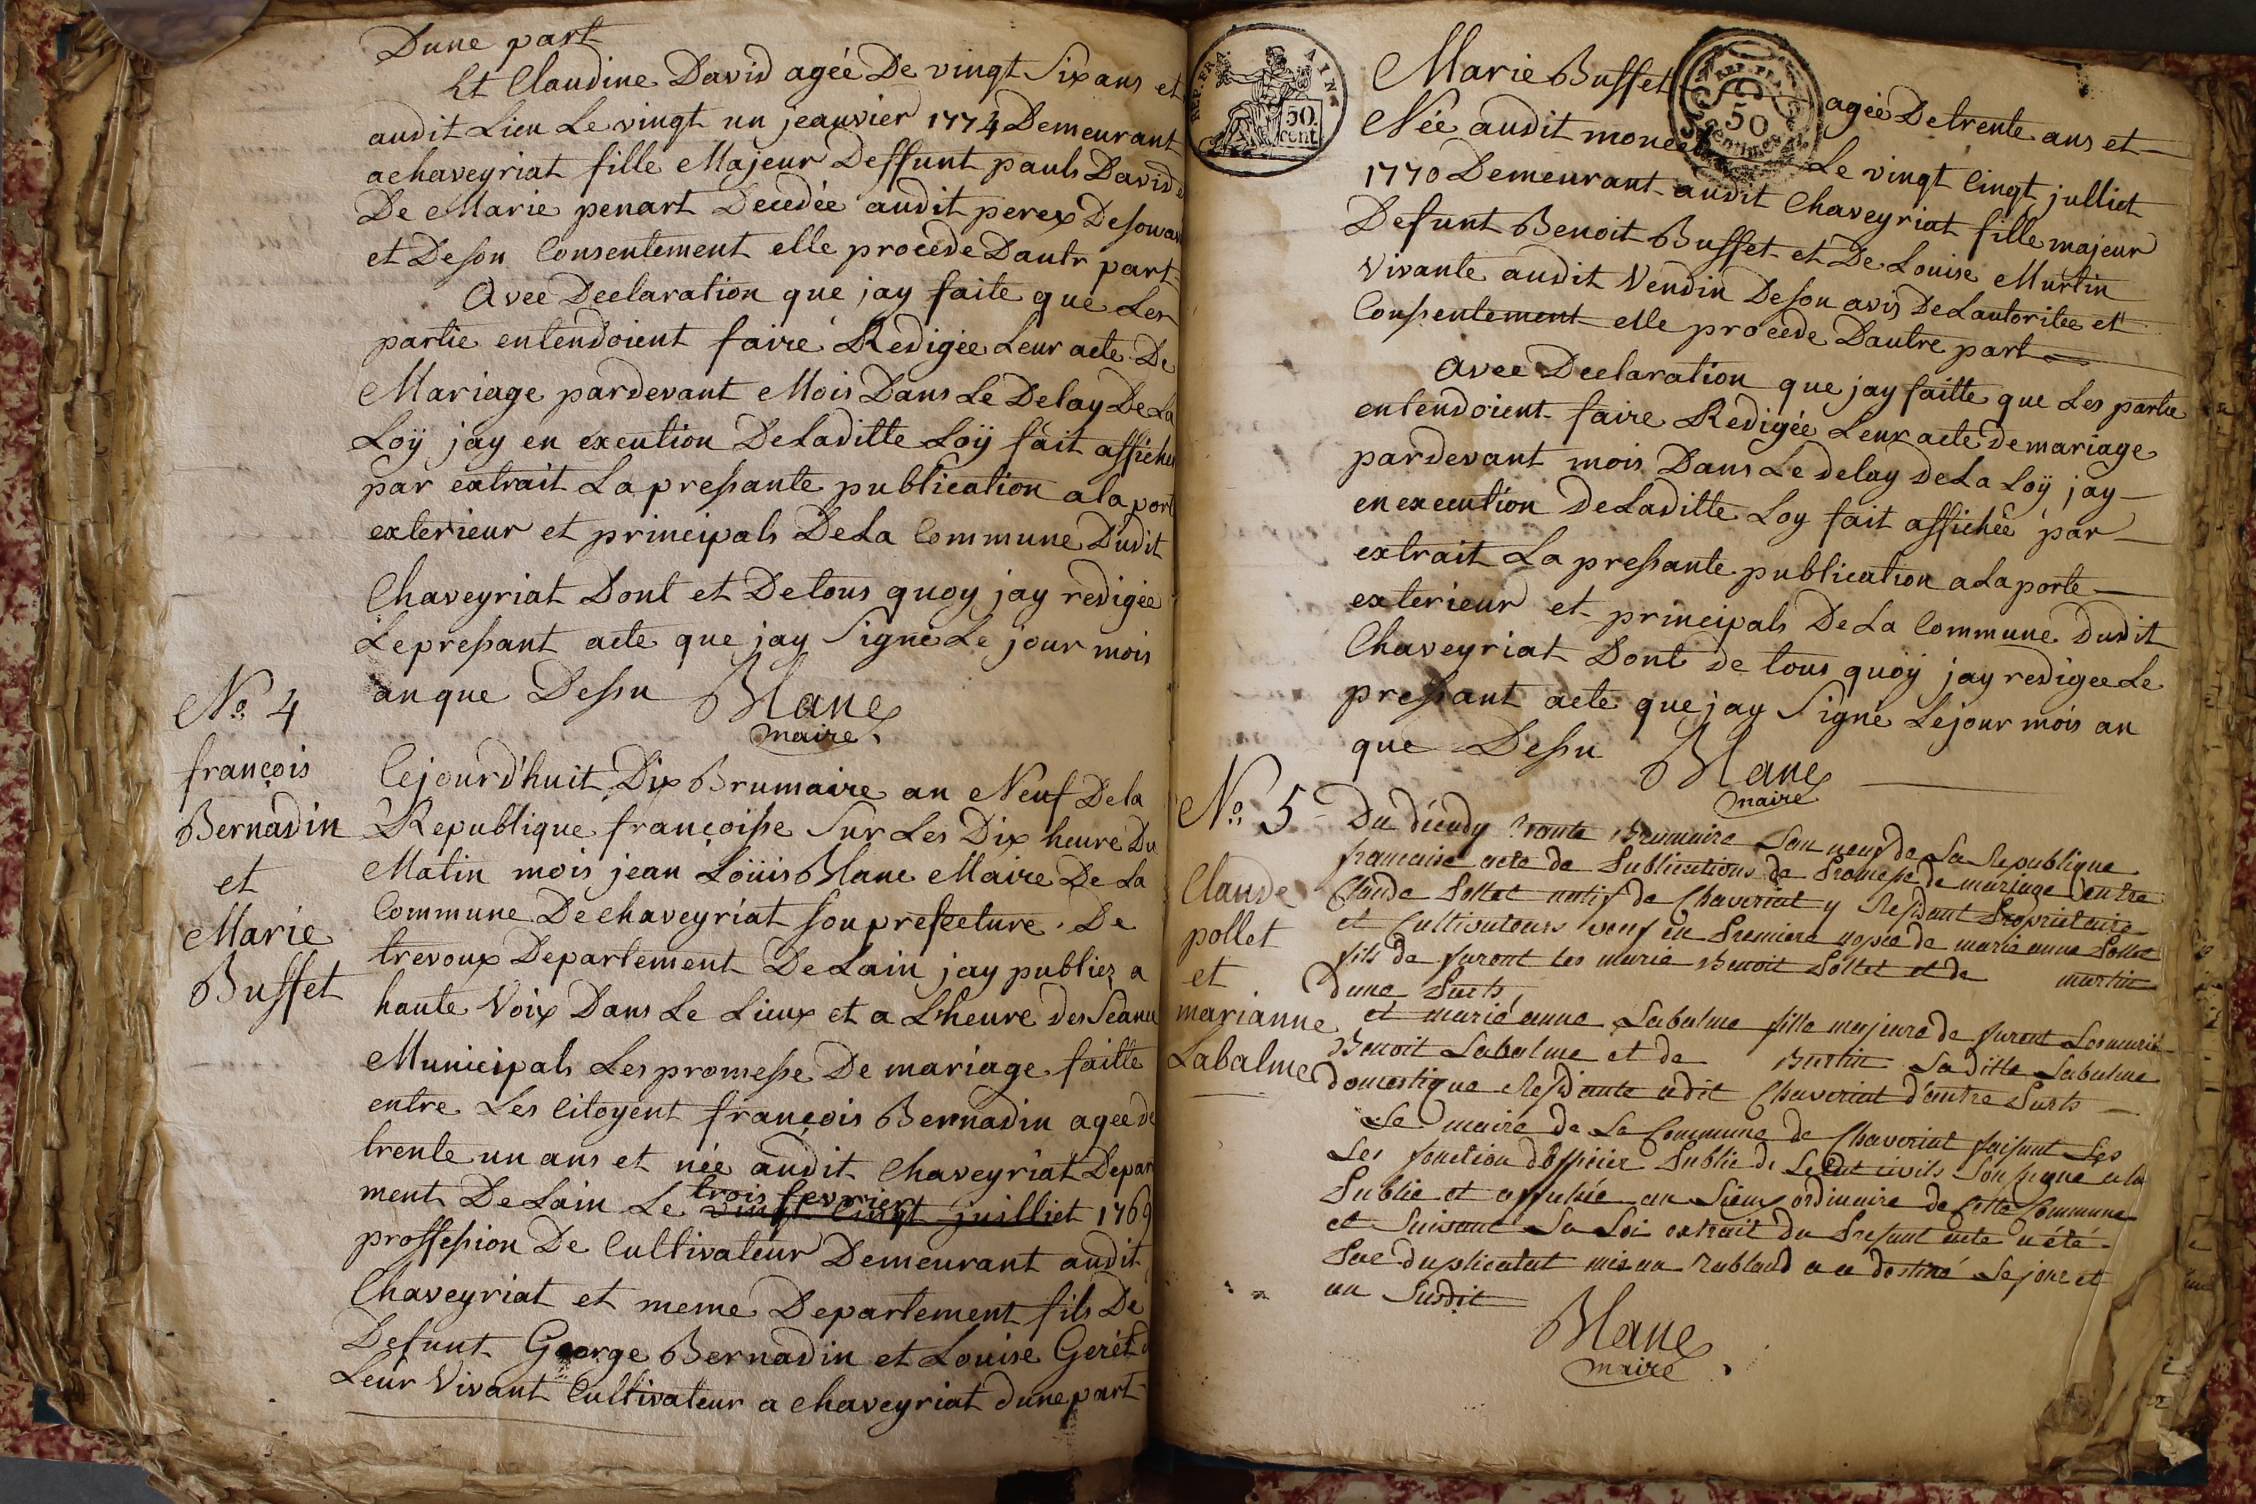 Dune part
Et Claudine David agée De vingt Six ans et
audit Lieu Le vingt un jeauvier 1774 Demeurant
a chaveyriat fille Majeur Deffunt pauls David
De Marie penart Decedée audit perex De son
et De son Consentement elle procede Dautr part
Avec Declaration que jay faite que Les
partie entendoient faire Redigée Leur acte De
Mariage pardevant Mois Dans Le Delay De La
Loÿ jay en exeution De Laditte Loÿ fait
par extrait La pressante publication a la
exterieur et principals De La Commune Dudit
Chaveyriat Dont et De tous quoy jay redigée
Le pressant acte que jay Signé Le jour mois
an que Dessu Blanc
maire
N.o 4
françois
Bernadin
et
Marie
Buffet
Cejourd'huit Dix Brumaire an Neuf De la
Republique françoisse Sur Les Dix heure Du
Matin mois jean Loüis Blanc Maire De La
Commune De chaveyriat sou prefecture De
trevoux Departement De Lain jay publiez a
haute Voix Dans Le Lieux et a Lheure des
Municipals Les promesse De mariage faitte
entre Les Citoyent françois Bernadin agee de
trente un ans et née audit Chaveyriat Depar
ment De Lain Le trois fevrier vingt Cinqt juilliet 1769
proffession De Cultivateur Demeurant audit
Chaveyriat et meme Departement fils De
Defunt George Bernadin et Louise
Leur Vivant Cultivateur a chaveyriat dune part
REP. FRA. AIN
50. cent.
REP. FRA.
50
centimes
Marie Buffet agée De trente ans et
Née audit Le vingt Cinqt julliet
1770 Demeurant audit Chaveyriat fille majeur
Defunt Benoit Buffet et De Louise Murtin
vivante audit Vendin De son avis De Lautoritee et
Consentement elle procede Dautre part
Avec Declaration que jay faitte que Les partie
entendoient faire Redigée Leur acte de mariage
pardevant mois Dans Le delay de La Loÿ jay
en execution de Laditte Loy fait affichée par
extrait La pressante publication a La porte
exterieur et principals De La Commune Dudit
Chaveyriat Dont de tous quoÿ jay redigee Le
pressant acte que jay Signé Le jour mois an
que Dessu Blanc
maire
N.o 5
Claude
pollet
et
marianne
Labalme
Du trente Brumaire Lan neuf de La Republique
francaise acte de Publications de Promesse de mariage entre
Claude Pollet natif de Chaveriat y Residant Proprietaire
et Cultivateurs veuf en Premiere de marie anne Pollet
fils de furont les marie Benoit Pollet et de martin
dune Parts
et marié anne Labalme fille majeure de furont Les marié
Benoit Labalme et de Laditte Labalme
domestique Residante adit Chaveriat d'autre Parts
Le maire de La Commune de Chaveriat faisant Les
Les fonction dofficier Public de civils Soussigne a la
Publie et an Lieux ordinaire de Cette Commune
et Suivant La Loi extrait du Present acte a été
duplicatat mis au a a destiné Le jour et
an Susdit
Blanc
maire